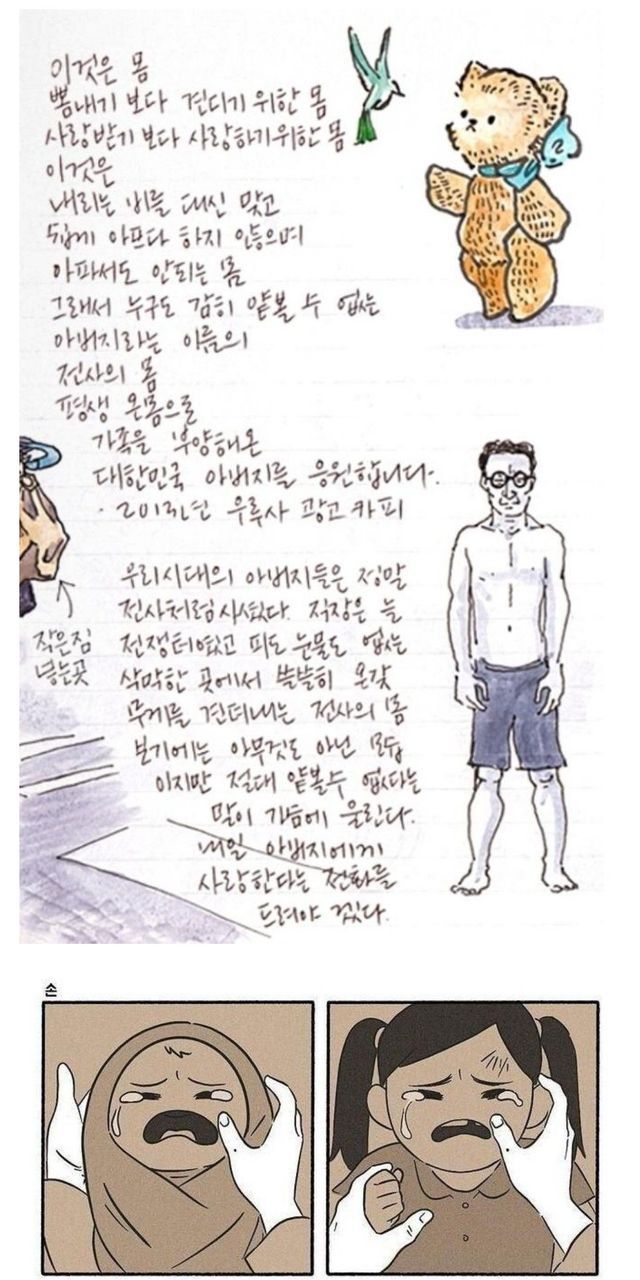 이것은 몸
뽐내기 보다 견디기 위한 몸
사랑받기 보다 사랑하기위한 몸
이것은
내리는 비를 대신 맞고
쉽게 아프다 하지 않으며
아파서도 안되는 몸
그래서 누구도 감히 얕볼 수 없는
아버지라는 이름의
전사의 몸
평생 온몸으로
가족을 부양해온
대한민국 아버지를 응원합니다.
· 2013년 우루사 광고 카피
우리시대의 아버지들은 정말
전사처럼 사셨다. 직장은 늘
전쟁터였고 피도 눈물도 없는
삭막한 곳에서 쓸쓸히 온갖
무게를 견뎌내는 전사의 몸
보기에는 아무것도 아닌 모습
이지만 절대 얕볼수 없다는
말이 가슴에 울린다.
내일 아버지에게
사랑한다는 전화를
드려야 겠다.
작은짐
넣는곳
손